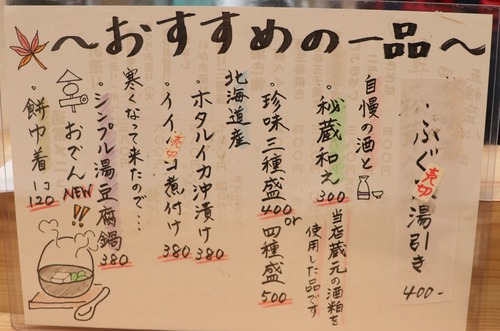 ～おすすめの一品～
・ふぐ 湯引き 400-
売切
自慢の酒と
・秘蔵和え 300
当店蔵元の酒粕を
使用した品です
・珍味三種盛 400 or 四種盛 500
北海道産
・ホタルイカ沖漬け 380
・イイ 煮付け 380
売切
寒くなって来たので…
・シンプル湯豆腐鍋 380
おでん NEW!!
・餅巾着 1コ 120